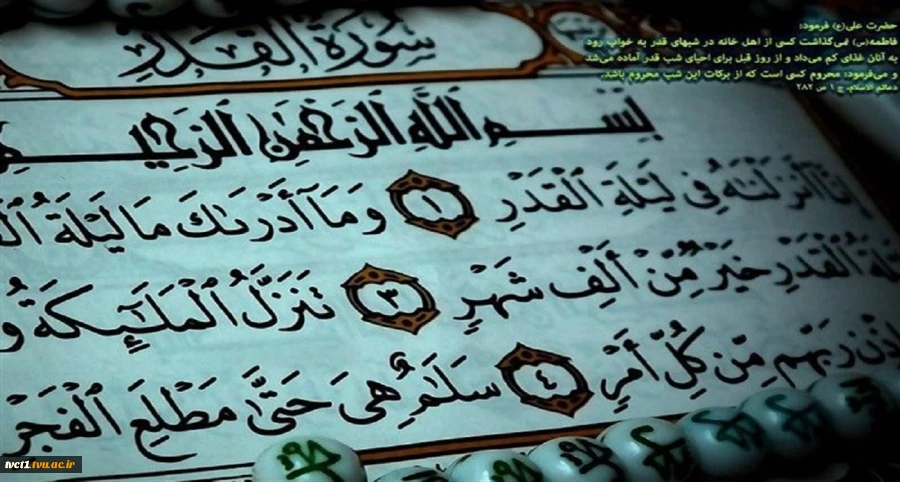 حضرت علی(ع) فرمود:
فاطمه(س) نمی‌گذاشت کسی از اهل خانه در شبهای قدر به خواب رود
به آنان غذای کم می‌داد و از روز قبل برای احیای شب قدر آماده می‌شد
و می‌فرمود: محروم کسی است که از برکات این شب محروم باشد.
دعائم الاسلام، ج ۱ ص ۲۸۲
سُورَةُ الْقَدْرِ
بِسْمِ اللَّهِ الرَّحْمَٰنِ الرَّحِيمِ
إِنَّا أَنزَلْنَاهُ فِي لَيْلَةِ الْقَدْرِ ١ وَمَا أَدْرَىٰكَ مَا لَيْلَةُ
الْقَدْرِ خَيْرٌ مِّنْ أَلْفِ شَهْرٍ ٣ تَنَزَّلُ الْمَلَٰٓئِكَةُ
رَبِّهِم مِّن كُلِّ أَمْرٍ ٤ سَلَٰمٌ هِيَ حَتَّىٰ مَطْلَعِ الْفَجْرِ
tvct1.tvu.ac.ir